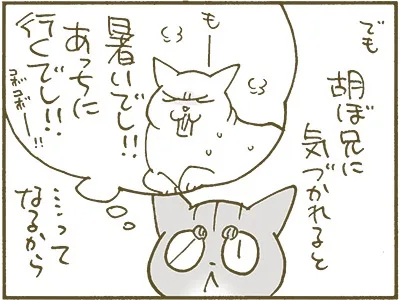 でも
胡ぼ兄に
気づかれると
もー
暑いでし!!
あっちに
行くでし!!
コボコボーー!!
…って
なるから